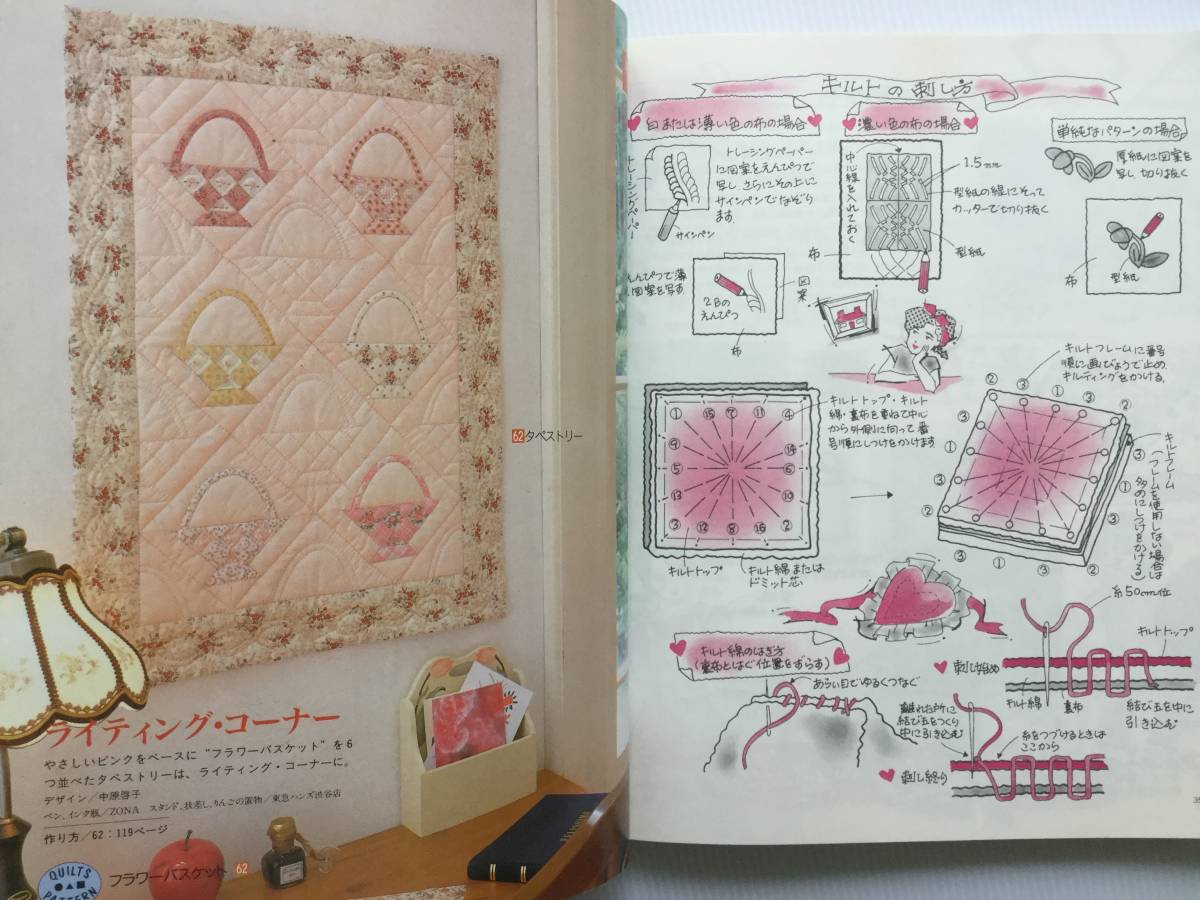 62タペストリー
ライティング・コーナー
やさしいピンクをベースに“フラワーバスケット”を6
つ並べたタペストリーは、ライティング・コーナーに。
デザイン/中原啓子
ペン、インク瓶/ZONA スタンド、状差し、りんごの置物/東急ハンズ渋谷店
作り方/62:119ページ
QUILTS
PATTERN
フラワーバスケット 62
キルトの刺し方
白または薄い色の布の場合
トレーシングペーパー
トレーシングペーパー
に図案をえんぴつで
写し、さらにその上に
サインペンでなぞり
ます。
サインペン
えんぴつで薄
図案を写す
2Bの
えんぴつ
図案
布
濃い色の布の場合
中心線を入れておく
1.5mm
型紙の線にそって
カッターで切り抜く
型紙
布
単純なパターンの場合
厚紙に図案を
写し、切り抜く
布
型紙
① ⑮ ⑦ ⑪ ④
⑨ ⑭
⑤ ⑥
⑬ ⑩
③ ⑫ ⑧ ⑯ ②
キルトトップ・キルト
綿・裏布を重ねて中心
から外側に向って番
号順にしつけをかけます
キルトトップ
キルト綿または
ドミット芯
キルトフレームに番号
順に画びょうで止め、
キルティングをかける。
② ③ ① ③ ②
③ ① ③ ②
③ ① ③
③ ① ③ ②
キルトフレーム
(フレームを使用しない場合は
多めにしつけをかける)
キルト綿のはぎ方
(裏布とはぐ位置をずらす)
あらい目でゆるくつなぐ
糸50cm位
刺し始め
キルトトップ
キルト綿
裏布
結び玉を中に
引き込む
離れた所に
結び玉をつくり
中に引き込む
糸をつづけるときは
ここから
刺し終り